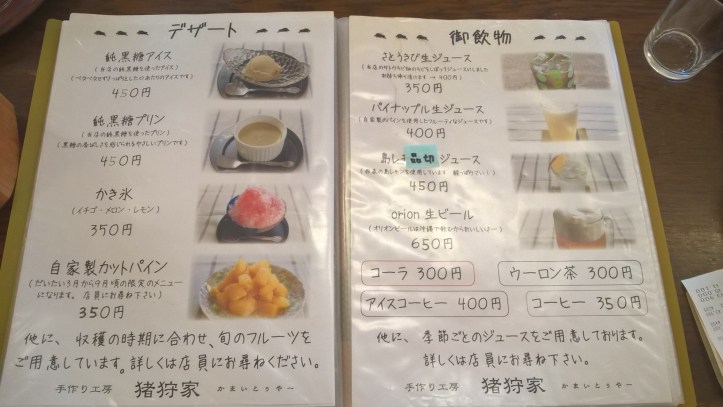 デザート
純黒糖アイス
(当店の純黒糖を使ったアイス)
450円
純黒糖プリン
(当店の純黒糖を使ったプリン)
(黒糖の香ばしさを感じられるやさしいプリンです)
450円
かき氷
(イチゴ・メロン・レモン)
350円
自家製カットパイン
(だいたい3月から9月頃の限定のメニュー
になります。店員にお尋ね下さい)
350円
他に、収穫の時期に合わせ、旬のフルーツを
ご用意しています。詳しくは店員にお尋ねください。
手作り工房 猪狩家 かまいとぅやー
御飲物
さとうきび生ジュース
350円
パイナップル生ジュース
(自家製のパインを使用したフルーティなジュースです)
400円
島レ 品切 ジュース
450円
orion 生ビール
(オリオンビールは沖縄で飲むからおいしいよ〜)
650円
コーラ 300円
ウーロン茶 300円
アイスコーヒー 400円
コーヒー 350円
他に、季節ごとのジュースをご用意しております。
詳しくは店員にお尋ね下さい。
手作り工房 猪狩家 かまいとぅやー